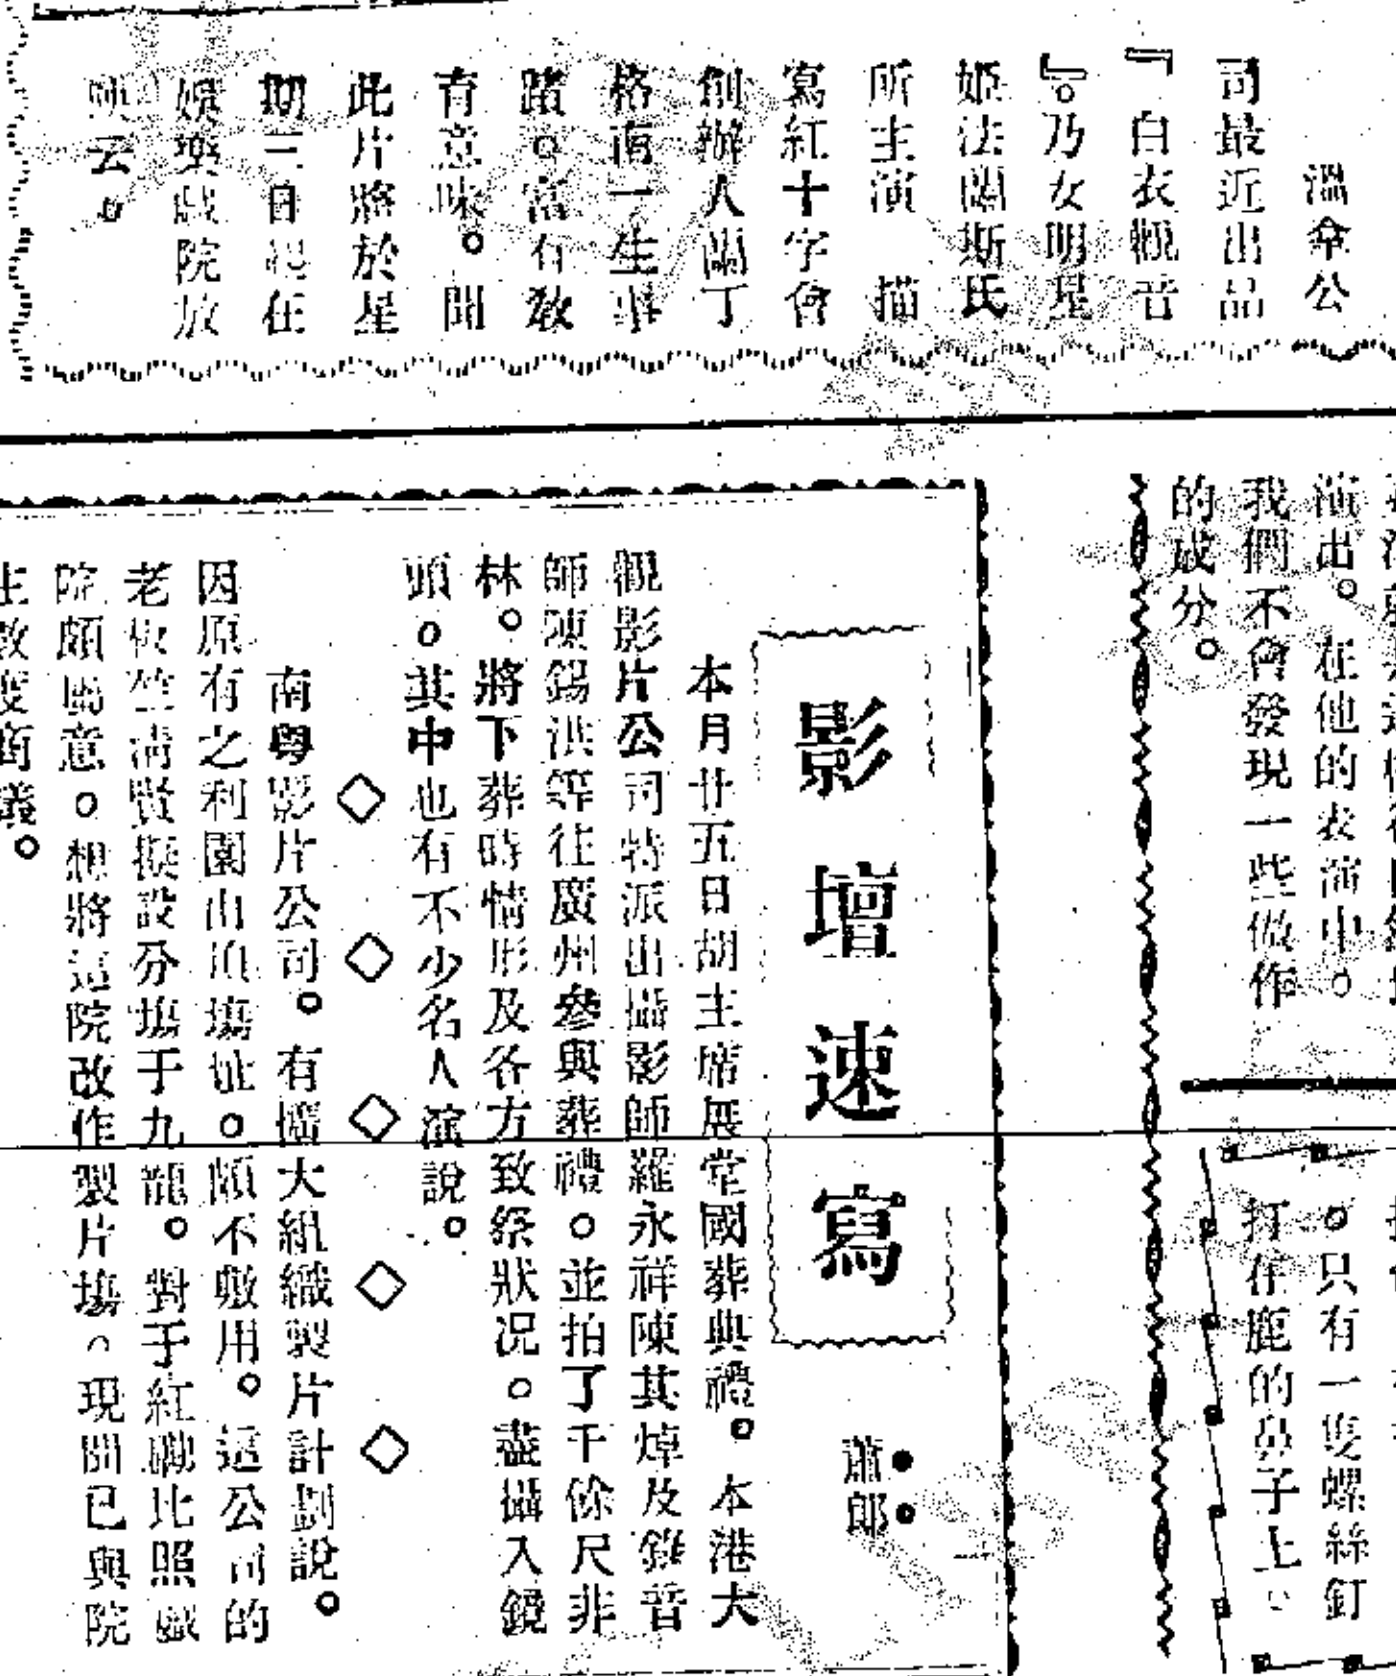 溫傘公
司最近出品
『白衣觀音
』。乃女明星
姬法蘭斯氏
所主演 描
寫紅十字會
創辦人蘭丁
格南一生事
蹟。富有敎
育意味。聞
此片將於星
期三日起在
娛樂戲院放
映云。
演出。在他的表演中。
我們不會發現一些做作
的成分。
。只有一隻螺絲釘
打在鹿的鼻子上。
影壇速寫
蕭郎
本月廿五日胡主席展堂國葬典禮。本港大
觀影片公司特派出攝影師羅永祥陳其焯及錄音
師陳錫洪等往廣州參與葬禮。並拍了千餘尺非
林。將下葬時情形及各方致祭狀况。盡攝入鏡
頭。其中也有不少名人演說。
◇◇◇◇◇
南粵影片公司。有擴大組織製片計劃說。
因原有之利園山頂塲址。頗不敷用。這公司的
老板竺淸賢擬設分塲于九龍。對于紅磡比照戲
院頗屬意。想將這院改作製片塲。現聞已與院
主數度商議。